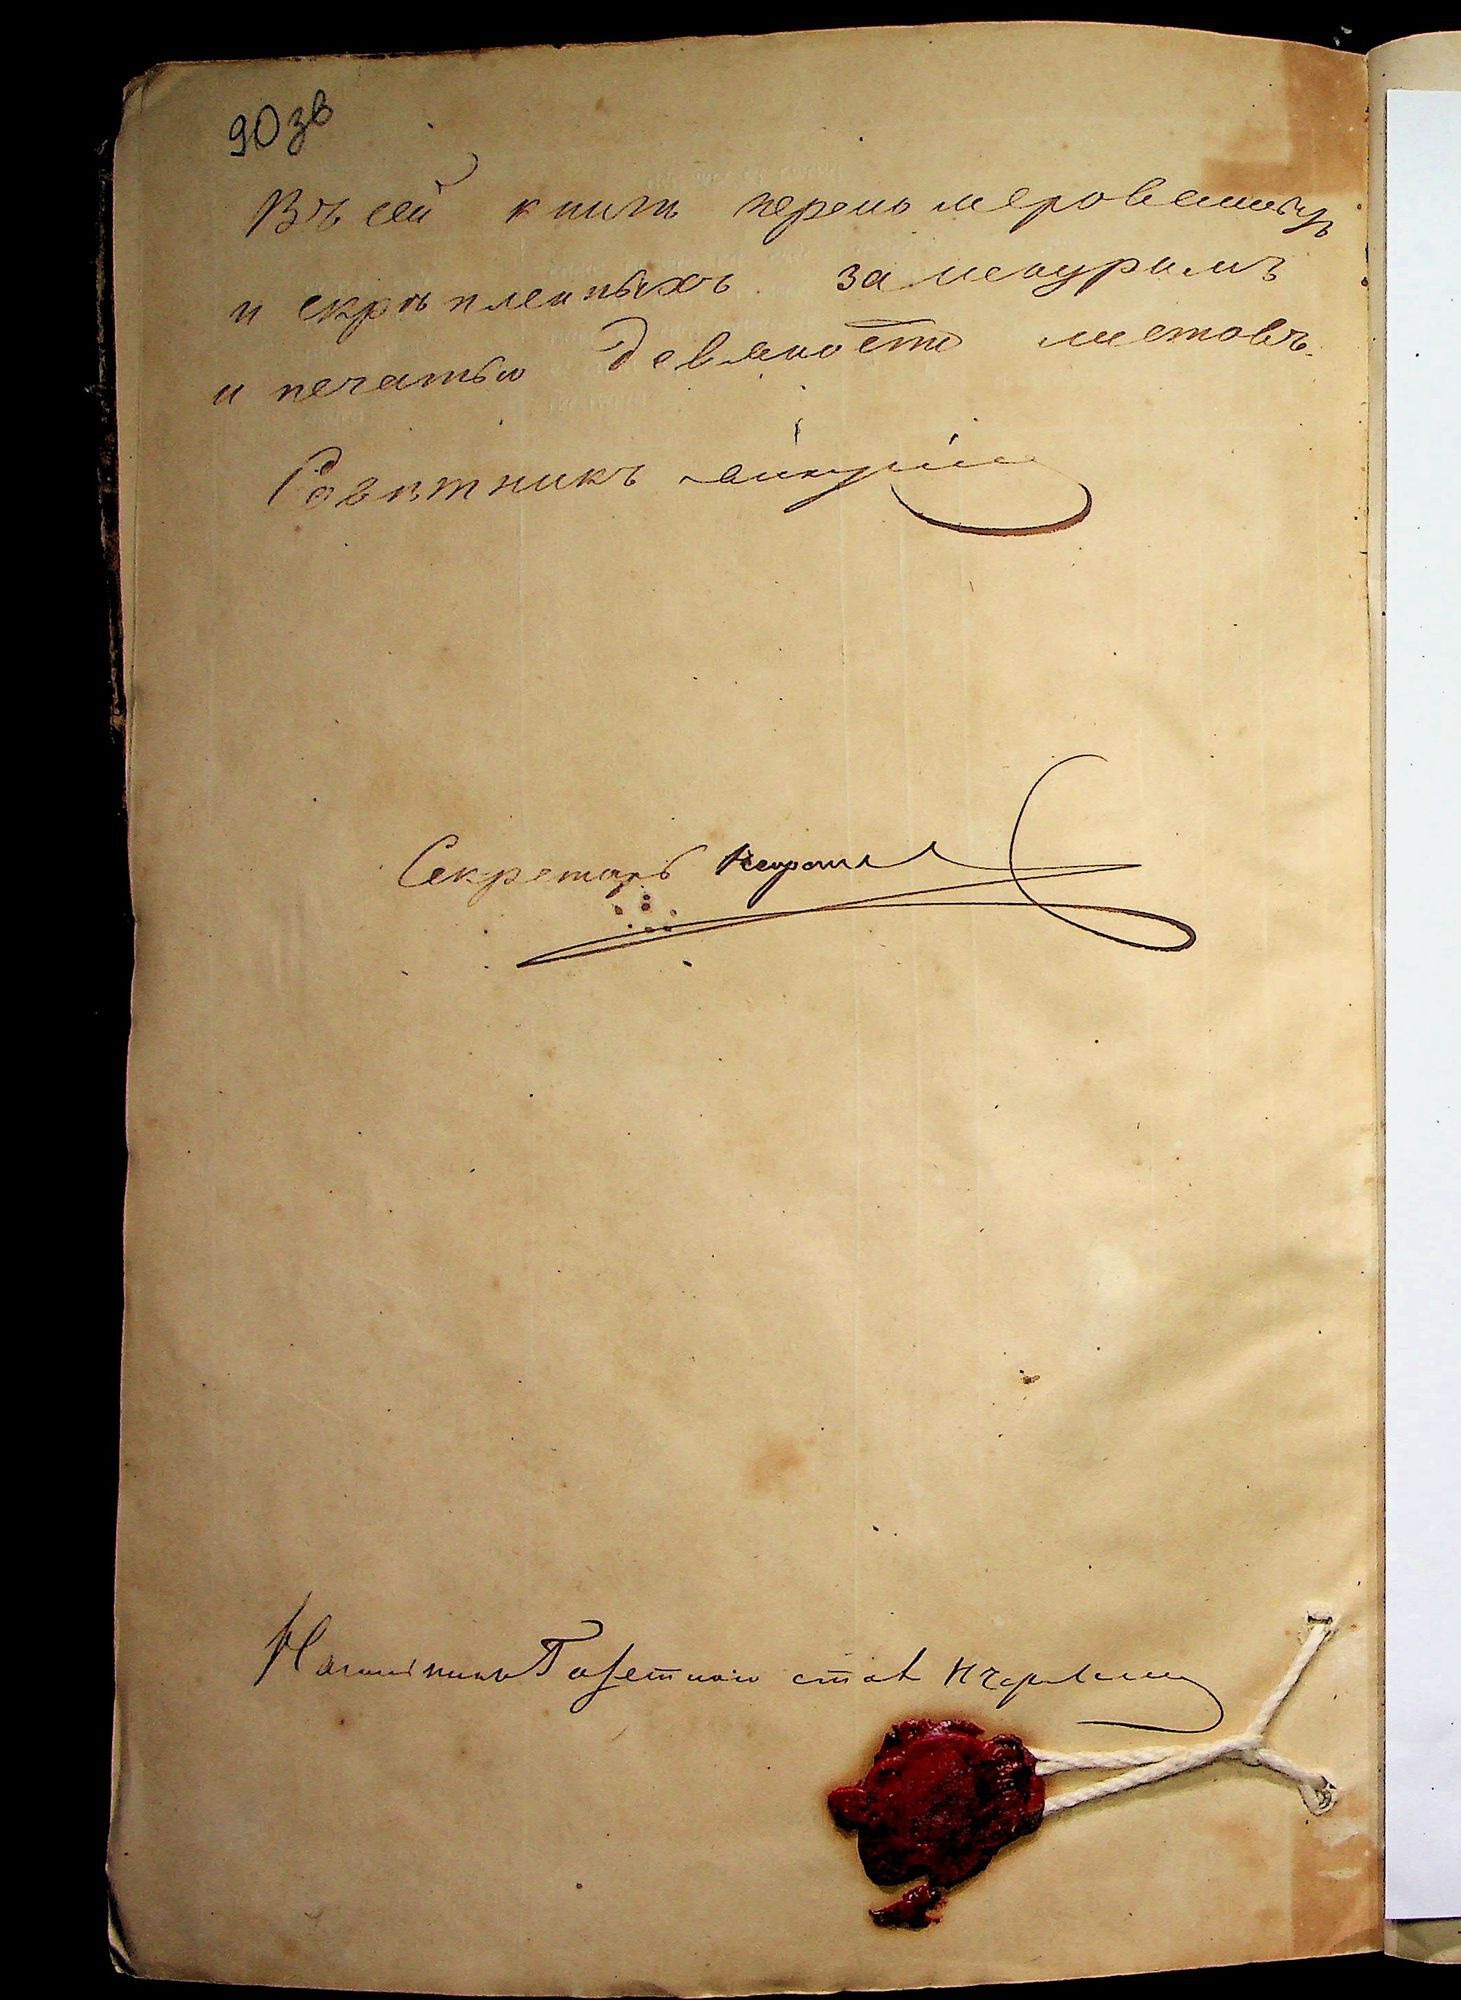 90 зв
Въ сей книгѣ перенумерованныхъ
и скрѣпленныхъ за шнуромъ
и печатью девяносто листовъ.
Совѣтникъ
Секретарь
стол